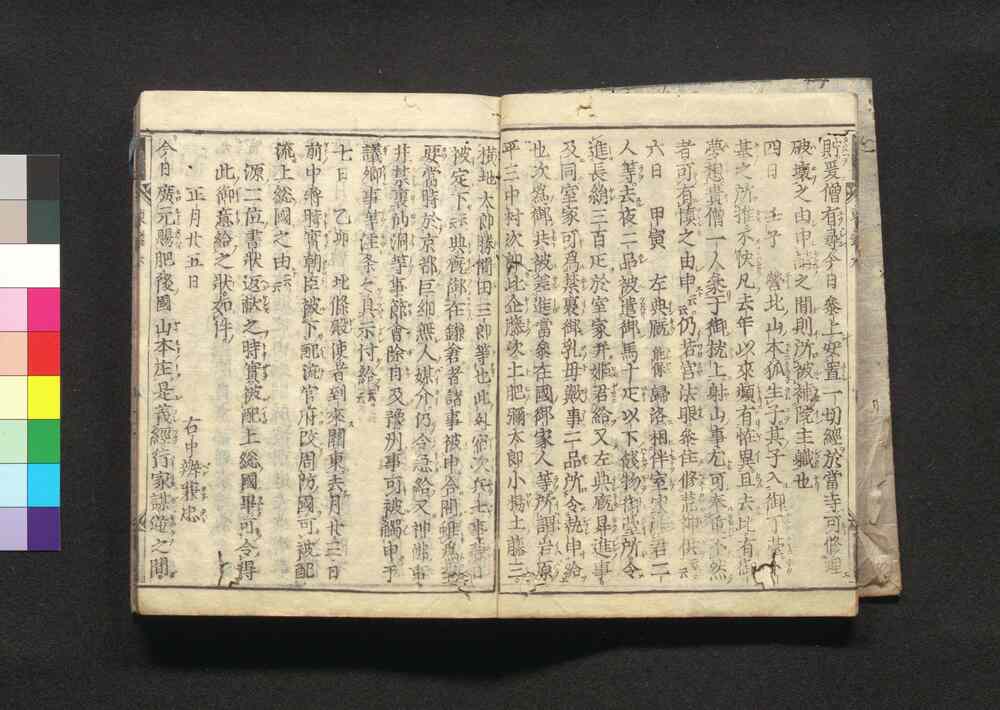 貯爰僧有尋今日參上安置一切經於當寺可修理
破壞之由申請之間則所被補院主職也
四日 壬子 營北山本狐生子其子入御丁臺
某之所推不快凡去年以來頻有恠異且去比有御
夢想貴僧一人參于御枕上射山事尤可奉重不然
者可有慎之由申云云仍若宮法眼參住修慈御供云云
六日 甲寅 左典厩歸洛相伴室家姫君二
人等去夜二品被遣御馬十疋以下餞物御臺所令
進長絹三百疋於室家并姫君給又左典厩具進事
及同室家可為御乳母數事二品所令執申給
也次為御共被差進當參在國御家人等所謂岩原
平三中村次郎比企藤次土肥彌太郎小揚土藤三
横地太郎勝間田三郎等也此外宿次兵士事
被定下云云典厩御在鎌倉者諸事被申合開雖為
要當時於京都巨細無人媒介仍令急給又神
井禁裏仙洞等事節會除目及豫州事可被觸申于
議卿事等注条々具示付給云云
七日 乙卯 北條殿使者到來關東去月廿三日
前中將時實朝臣被下配流官府改周防國可被配
流上総國之由云云
源二位書狀返献之時實被配上総國畢可令得
此御意給之狀如件
正月廿五日 右中辨兼忠
今日廣元賜肥後國山本庄是義經行家謀逆之間